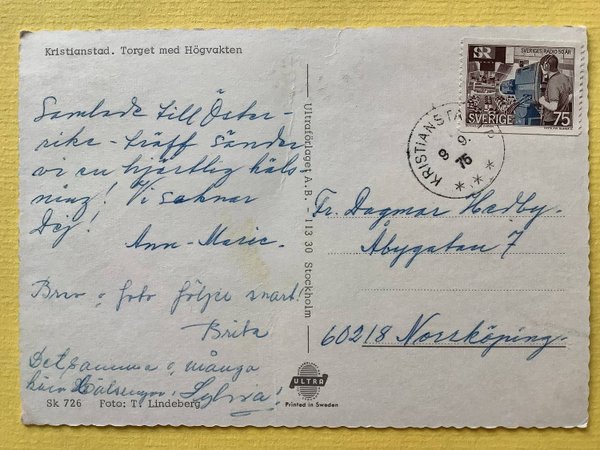 Kristianstad. Torget med Högvakten
Samlade till Öster-
rike-träff sände
vi en hjärtlig häls
ning! Vi saknar
Dej!
Ann-Marie.
Brev o, foto följer snart!
Brita
Detsamma o, många
kära Hälsningar, Sylvia!
Sk 726 Foto: T. Lindeberg
Ultraförlaget A.B. - 113 30 Stockholm
ULTRA
Printed in Sweden
SR
SVERIGES RADIO 50 ÅR
SVERIGE 75
KRISTIANSTAD
8 9.
75
Fr. Dagmar Hedby.
Åbygatan 7
60218 Norrköping.